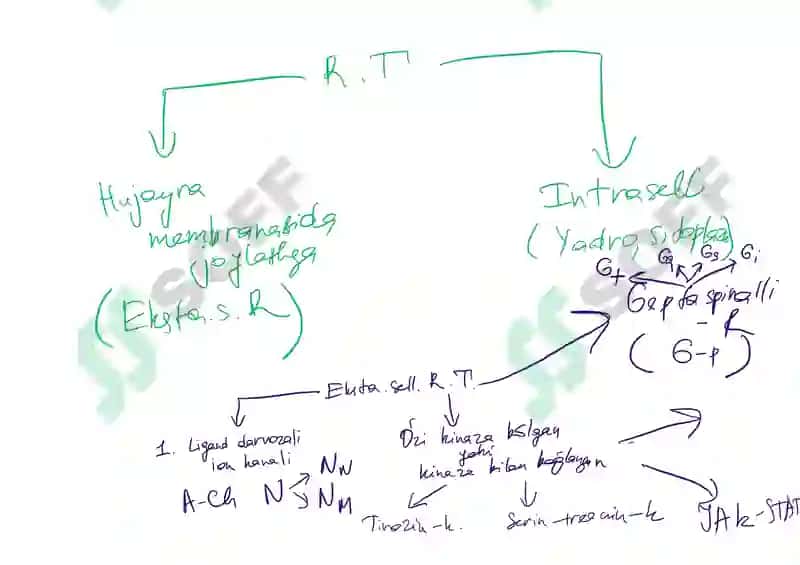 R.T
Hujayra
membranasida
joylashga
(Eksta.s.R)
Intrasell
(Yadro, sitoplaz)
Gt Gq Gs Gi
Gepta spinalli
- R
(G-p)
Eksta.sell.R.T.
1. Ligand darvozali
ion kanali
A-Ch N NN
NM
Ózi kinaza bólgan
yoki
kinaza bilan boglangan
Tirozin-k.
Serin-treonin-k
JAk-STAT
SSCEF
SSCEF